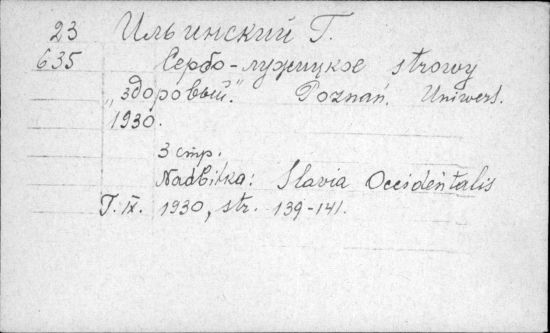 23 Ильинский Г.
635 Сербо-лужицкое strowy
„здоровый". Poznań. Uniwers.
1930.
3 стр.
Nadbitka: Slavia Occidentalis
T. IX. 1930, str. 139-141.